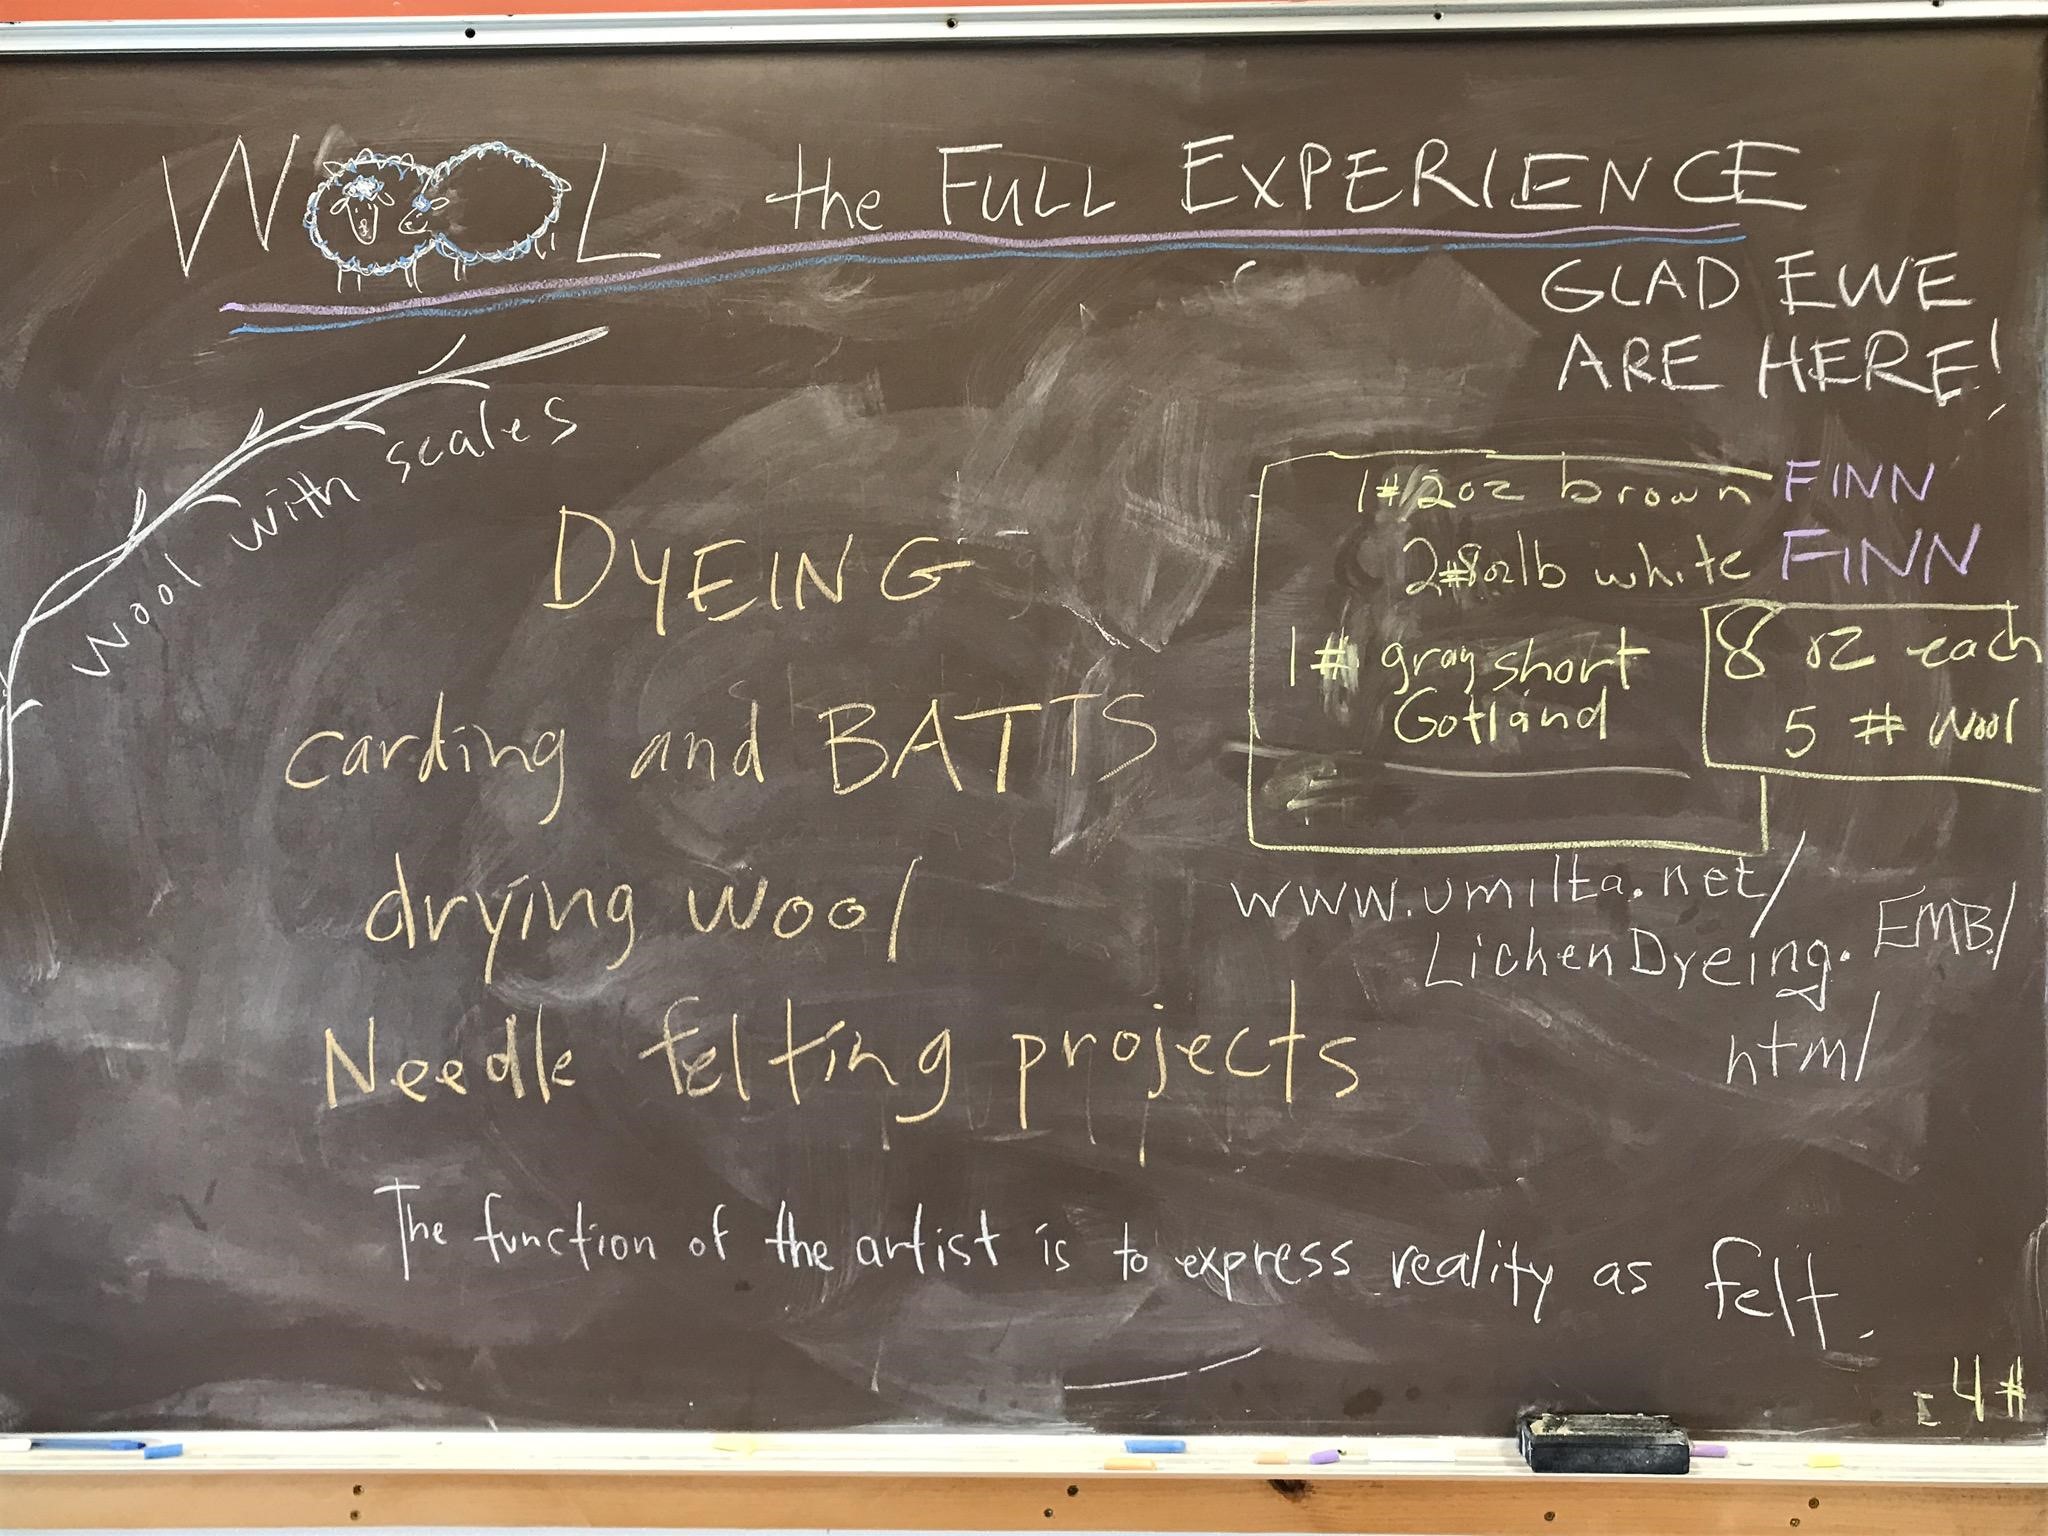 WOOL the FULL EXPERIENCE
GLAD EWE
ARE HERE!
wool with scales
DYEING
carding and BATTS
drying wool
Needle felting projects
1# 2oz brown FINN
2#8oz lb white FINN
1# gray short
Gotland
8 oz each
5 # wool
www.umilta.net/
LichenDyeing. EMB/
html
The function of the artist is to express reality as felt.
4#